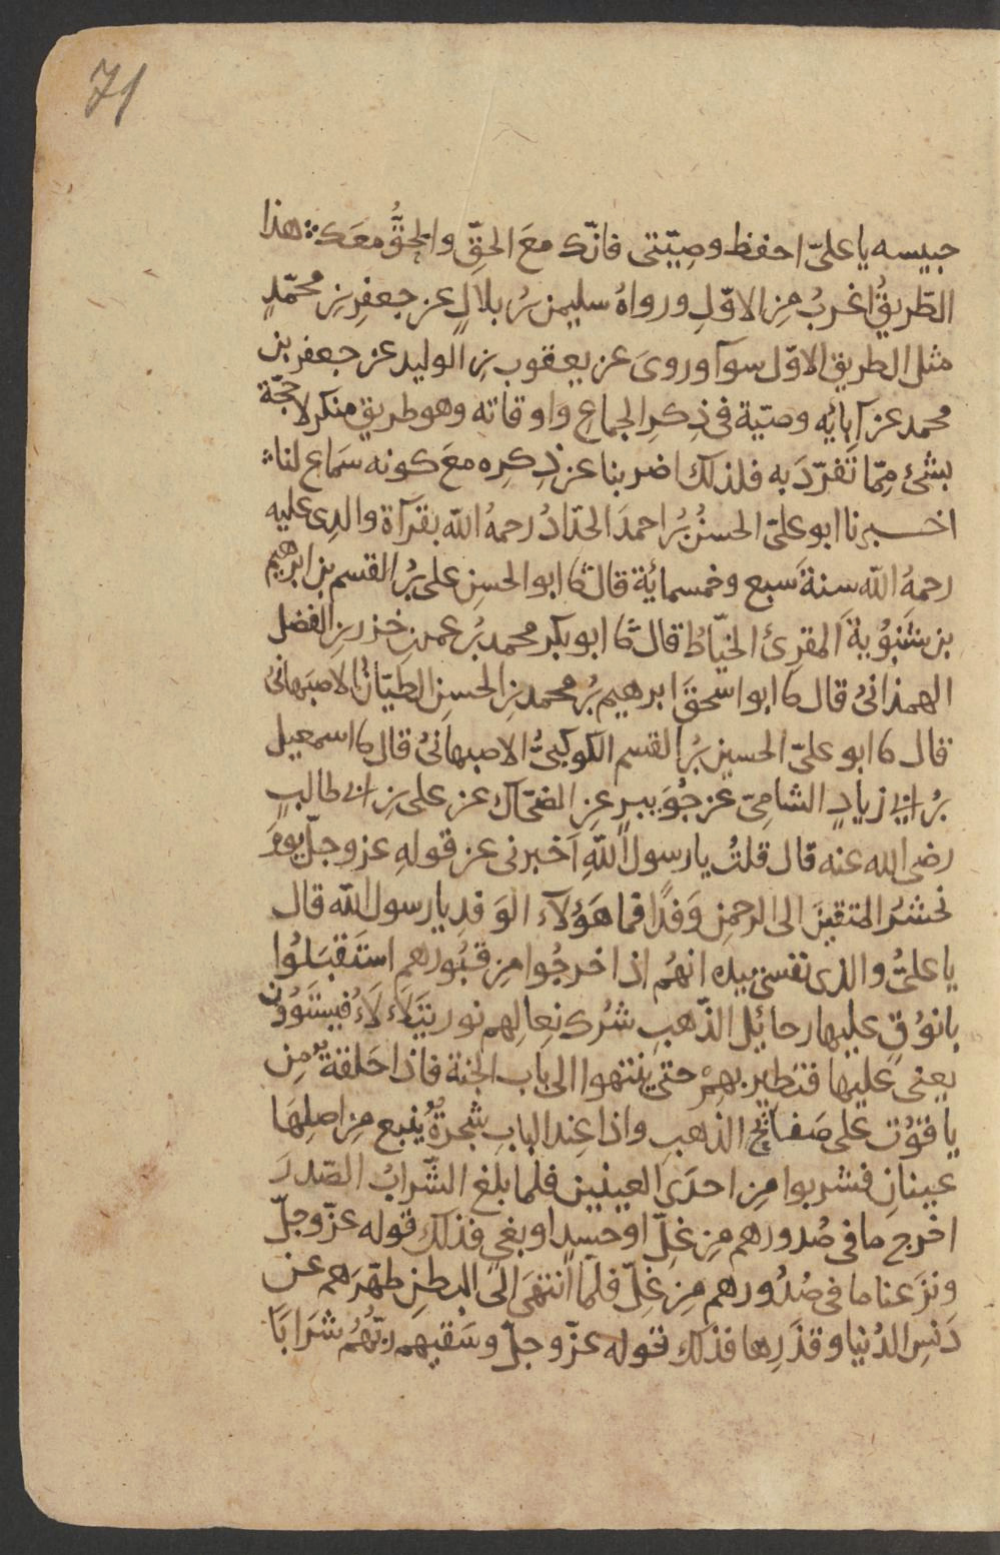 71
جبيسه يا عليّ احفظ وصِيّتى فانّك معَ الحقِّ والحقُّ معَك؞ هذا
الطّريقُ اغربُ مِن الاوّلِ ورواهُ سليمن بنُ بلالٍ عن جعفرِ بنِ محمّدٍ
مثل الطريق الاوّل سوآ وروىَ عن يعقوب بنِ الوليد عن جعفر بن
محمد عن آبائِه وصيّة فى ذِكرِ الجماعِ واوقاته وهو طريق منكر لا حجّة
بشئ مِمّا تَفرّدَ به فلذلك اضربنا عن ذِكرِه معَ كونه سَماع لنا؞
اخبرنا ابو علىّ الحسنُ بنُ احمدَ الحدّادُ رحمهُ اللّه بقرآة والدِى عليه
رحمهُ اللّه سنةَ سبع وخمسمائِة قال ثنا ابو الحسنِ على بنُ القسم بن ابرهيم
بن شَنبُويةَ المقرِئُ الخيّاطُ قال ثنا ابو بكر محمد بنُ عمر بنِ خزر بنِ الفضل
الهمذانىُ قال نا ابو اسحقَ ابرهيم بنُ محمد بنِ الحسنِ الطيّانُ الاصبَهانىُ
قال نا ابو علىّ الحسين بنُ القسم الكوكبىُّ الاصبهانىُ قال نا اسمعيل
بنُ ابى زيادٍ الشامِىّ عن جُوَيبرٍ عنِ الضحّاك عن على بنِ ابى طالبٍ
رضى الله عنه قال قلتُ يا رسولَ اللّهِ اَخبرنى عن قولهِ عز وجلّ يومَ
نحشرُ المتقينَ الى الرحمنِ وَفدًا فما هَؤلآء الوَفدِ يا رسول اللّه قال
يا علىُّ والذى نفسى بيده انهُم اذا خرجُوا مِن قبُورهم استَقبَلُوا
بانوُقٍ عليها رحائِل الذّهبِ شرُك نِعالِهم نور يتَلَاءلَاءُ فيستَوُون
يعنى عليها فتطير بهِمْ حتى ينتهوا الى باب الجنة فاذا حَلقة مِن
ياقوُت على صَفائحِ الذهبِ واذا عِند البابِ شجرةُ ينبع مِن اصلِهَا
عينانِ فشربوا مِن احدَى العينين فلما بلغ الشّرابُ الصّدرَ
اخرج ما فى صُدورهم مِن غِلّ او حسدٍ او بغىٍ فذلك قوله عزّ وجلّ
ونزَعنا ما فى صُدُورهم مِن غِلّ فلمّا انتهىَ الىَ البطنِ طهّرَهم عن
دَنسِ الدُنيا وقذَرِها فذلك قوله عزّ وجلّ وسَقيهم ربّهُم شَرَابًا